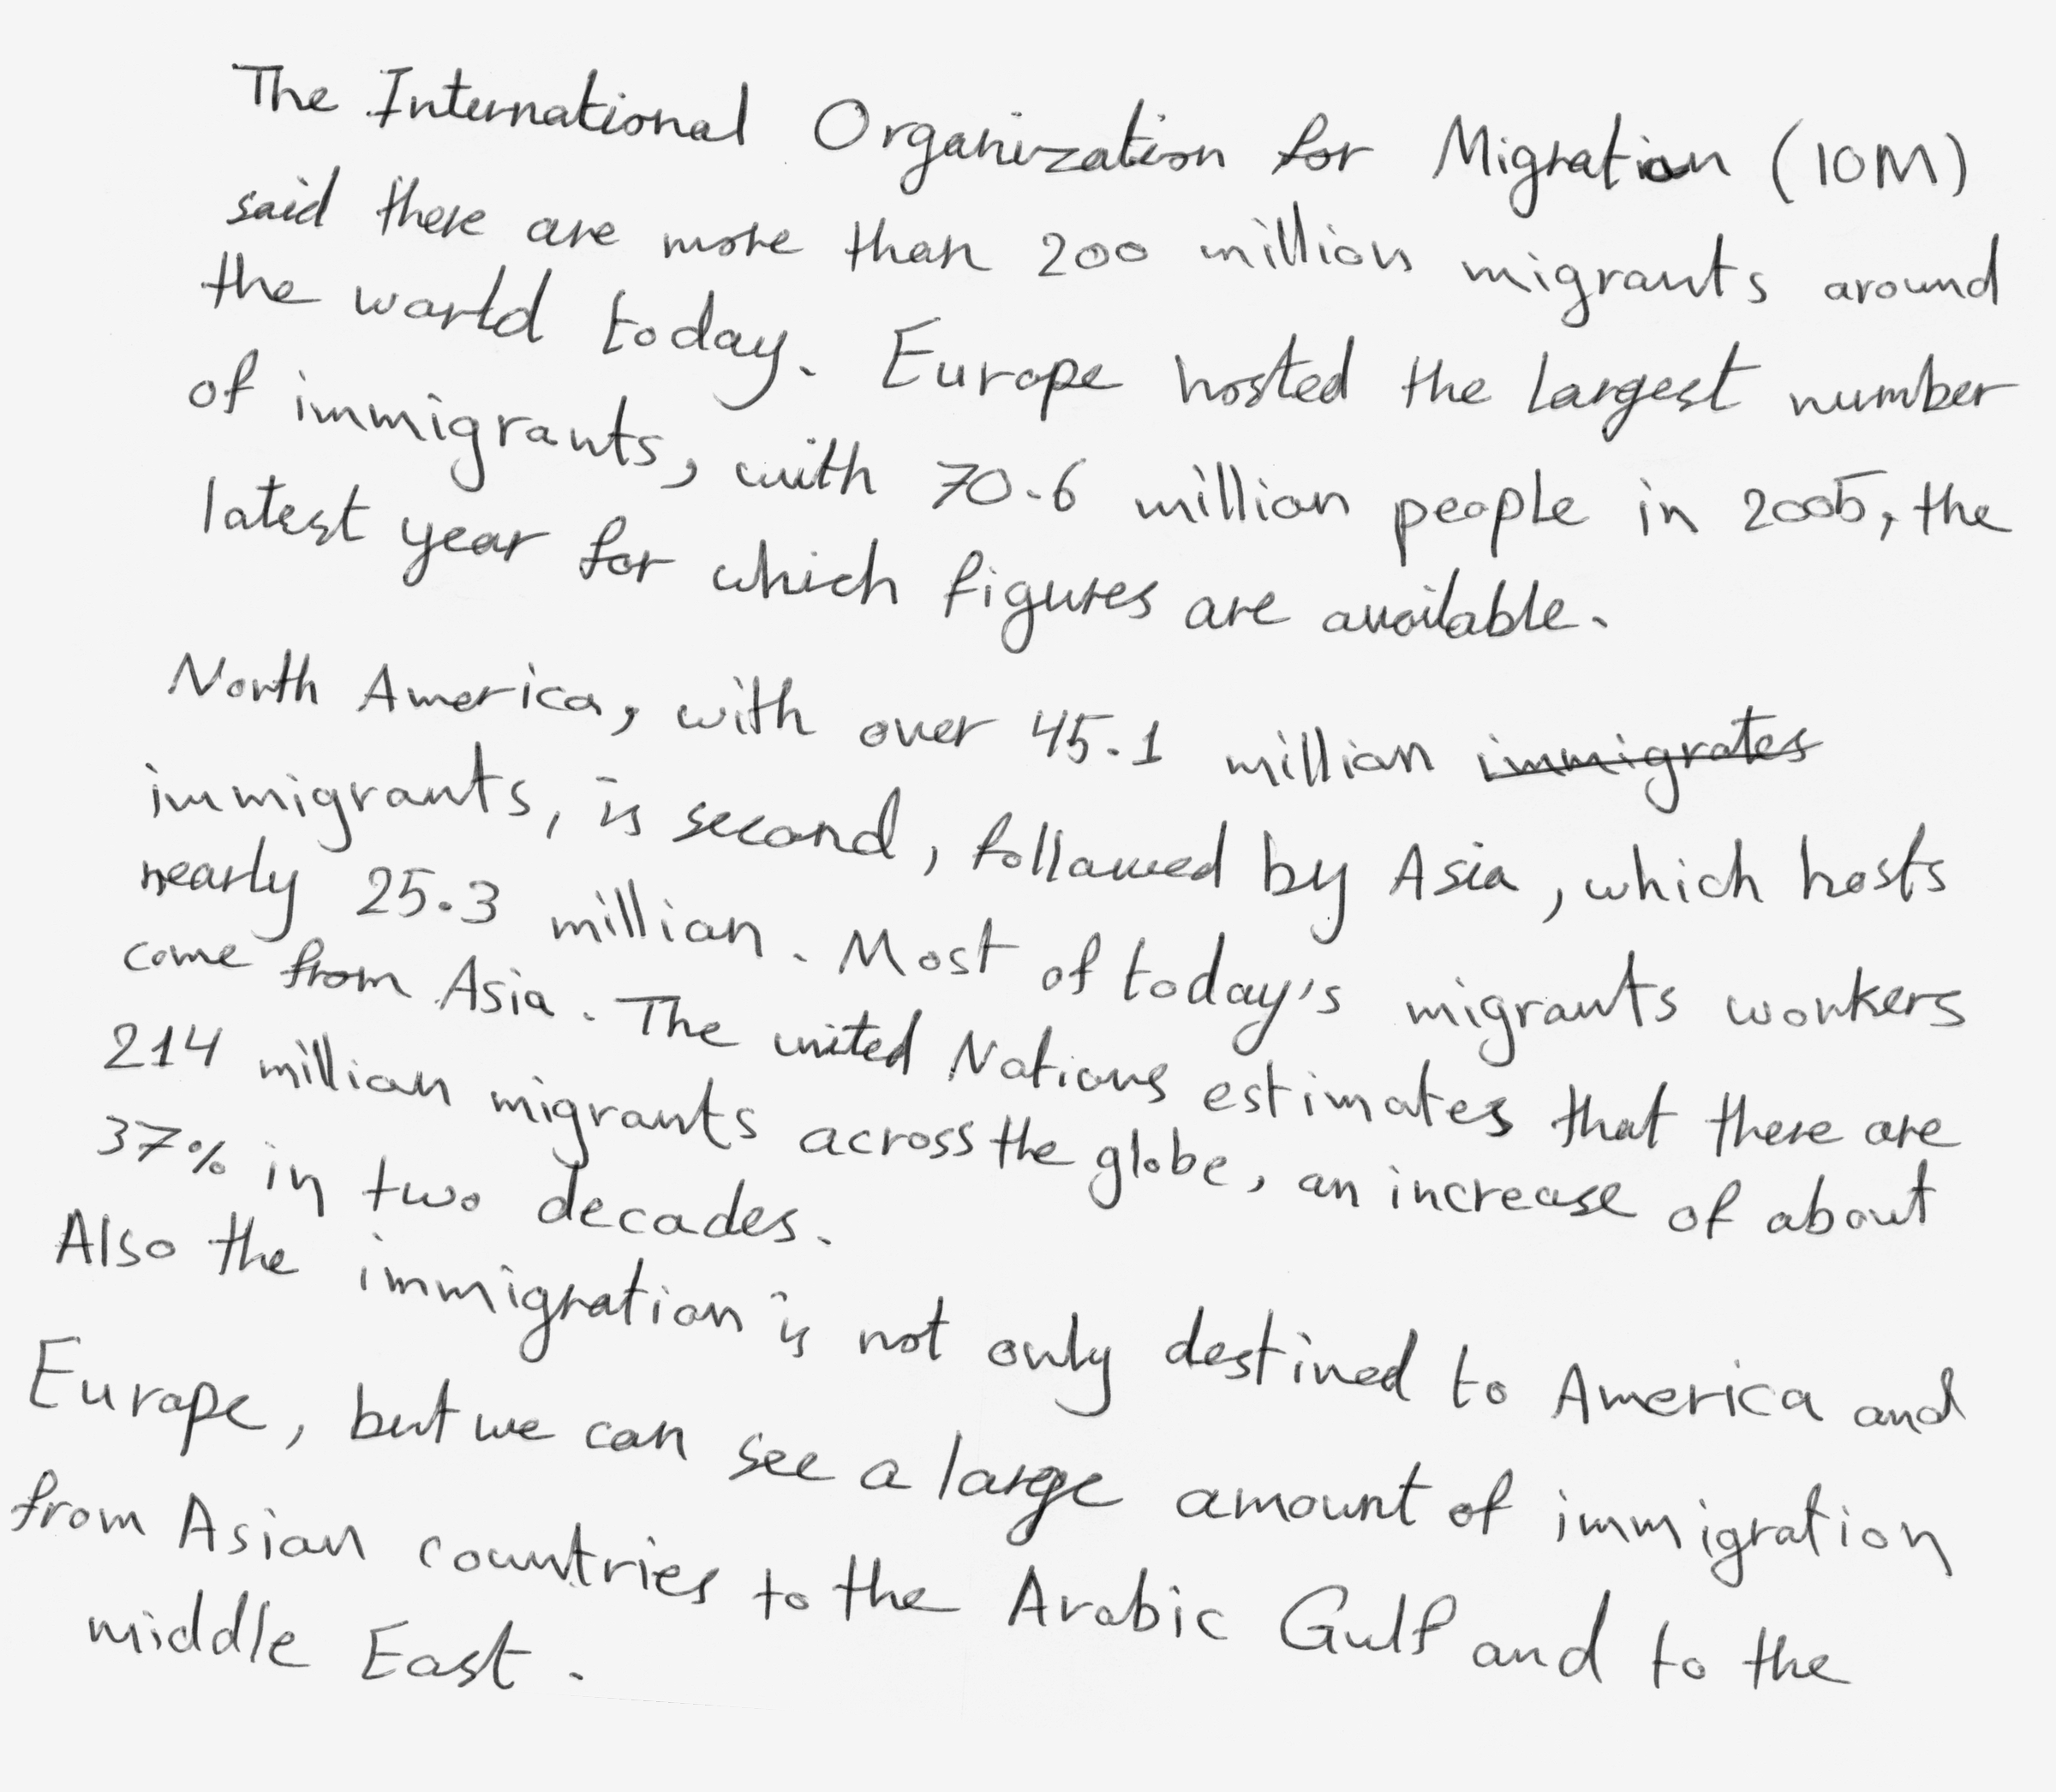 The International Organization for Migration (IOM)
said there are more than 200 million migrants around
the world today. Europe hosted the largest number
of immigrants, with 70.6 million people in 2005, the
latest year for which figures are available.
North America, with over 45.1 million immigrates
immigrants, is second, followed by Asia, which hosts
nearly 25.3 million. Most of today's migrants workers
come from Asia. The united Nations estimates that there are
214 million migrants across the globe, an increase of about
37% in two decades.
Also the immigration is not only destined to America and
Europe, but we can see a large amount of immigration
from Asian countries to the Arabic Gulf and to the
middle East.